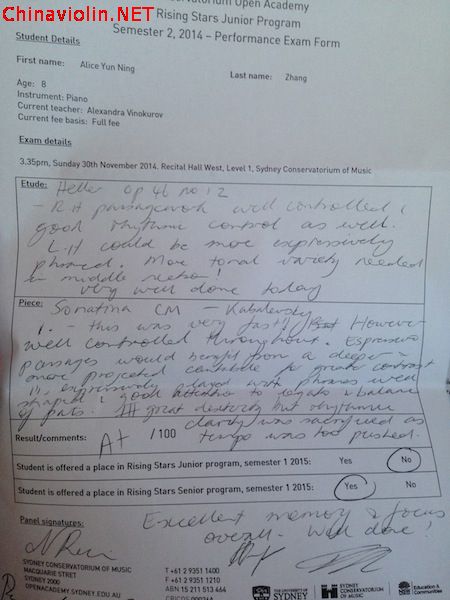 Chinaviolin.NET
Conservatorium Open Academy
Rising Stars Junior Program
Semester 2, 2014 – Performance Exam Form
Student Details
First name: Alice Yun Ning
Last name: Zhang
Age: 8
Instrument: Piano
Current teacher: Alexandra Vinokurov
Current fee basis: Full fee
Exam details
3.35pm, Sunday 30th November 2014. Recital Hall West, Level 1, Sydney Conservatorium of Music
Etude: Heller op 46 no 12
- R.H passagework well controlled &
good rhythmic control as well.
L.H could be more expressively
phrased. More tonal variety needed
in middle section!
Very well done today
Piece: Sonatina CM - Kabalevsky
I. - this was very fast!! However
well controlled throughout. Expressive
passages would benefit from a deeper
more projected cantabile for greater contrast
II. expressively played with phrases well
shaped & good attention to legato & balance
of parts. III great dexterity but rhythmic
clarity was sacrificed as
tempo was too pushed.
Result/comments: A+ / 100
Student is offered a place in Rising Stars Junior program, semester 1 2015: Yes No
Student is offered a place in Rising Stars Senior program, semester 1 2015: Yes No
Excellent memory & focus
overall. Well done!
Panel signatures:
SYDNEY CONSERVATORIUM OF MUSIC
MACQUARIE STREET
SYDNEY 2000
OPENACADEMY.SYDNEY.EDU.AU
T +61 2 9351 1400
F +61 2 9351 1210
ABN 15 211 513 464
CRICOS 00026A
THE UNIVERSITY OF
SYDNEY
SYDNEY
CONSERVATORIUM
OF MUSIC
Education &
Communities